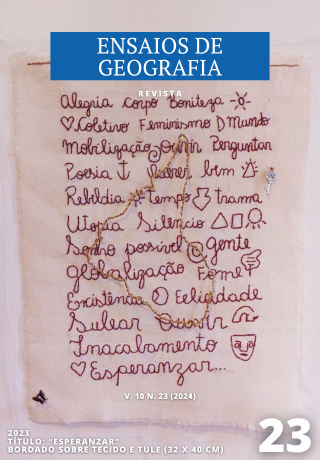 ENSAIOS DE
GEOGRAFIA
REVISTA
Alegria corpo Boniteza
Coletivo Feminismo D Mundo
Mobilização Ouvir Perguntar
Poesia bem
Rebeldia tempo trama
Utopia Silêncio
Sonho possível gente
globalização Fome
Existência Felicidade
Sulear Ouvir
Inacabamento
Esperançar...
V. 10 N. 23 (2024)
2023
TÍTULO: "ESPERANZAR"
BORDADO SOBRE TECIDO E TULE (32 X 40 CM)
23